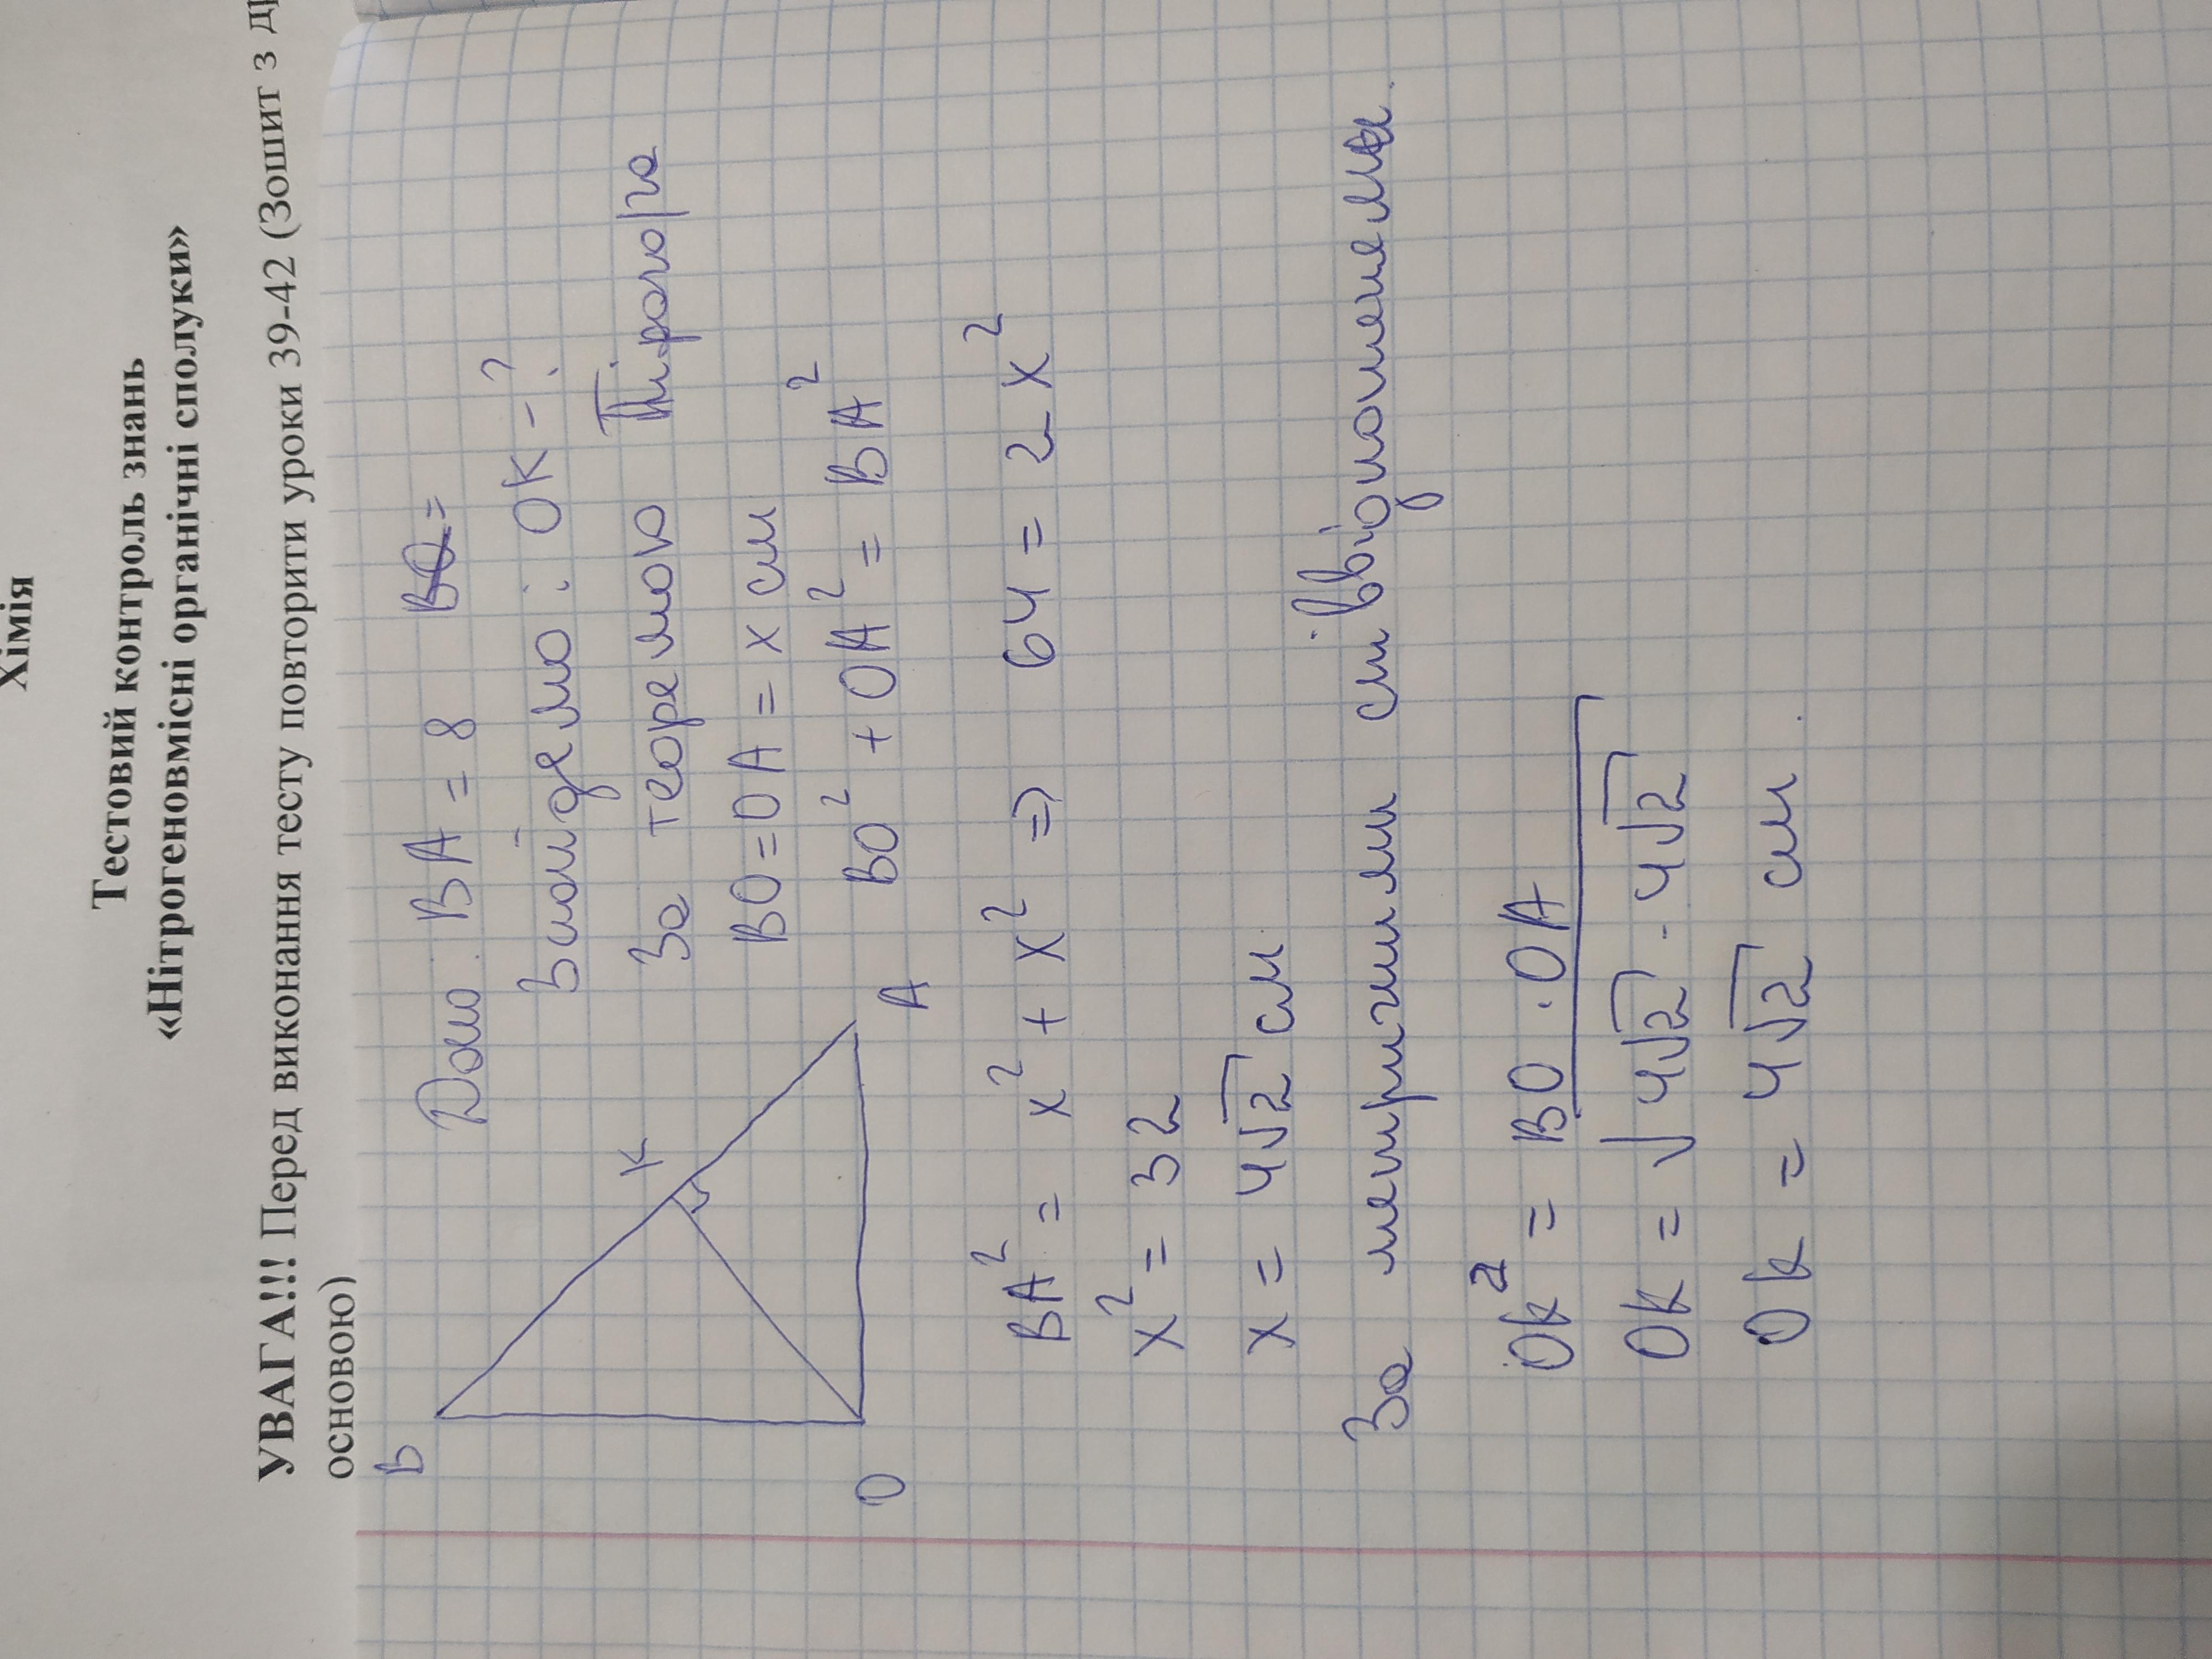 Хімія
Тестовий контроль знань
«Нітрогеновмісні органічні сполуки»
УВАГА!!! Перед виконання тесту повторити уроки 39-42 (Зошит з
основою)
Дано: BA = 8
Знайдемо: OK - ?
За теоремою Піфагора
BO = OA = x см
BO² + OA² = BA²
B
K
O
A
BA² = x² + x² => 64 = 2x²
x² = 32
x = 4√2 см
За метричними співвідношеннями
OK² = BO · OA
OK = √4√2 · 4√2
OK = 4√2 см.